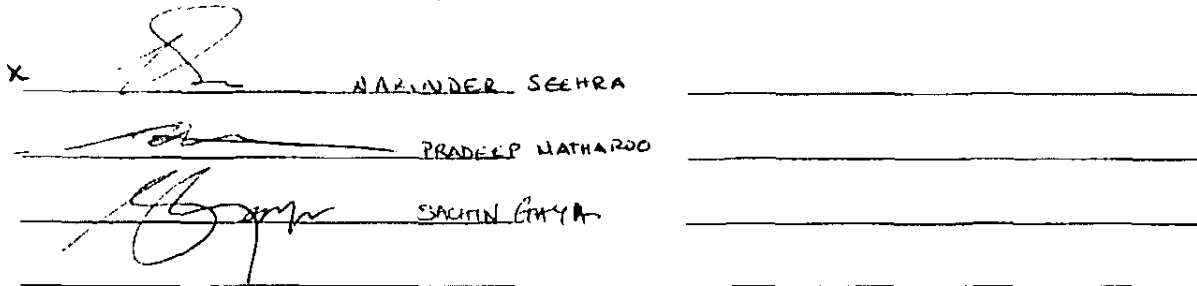 X NARINDER SEEHRA
PRADEEP NATHAROO
SACHIN GAYA